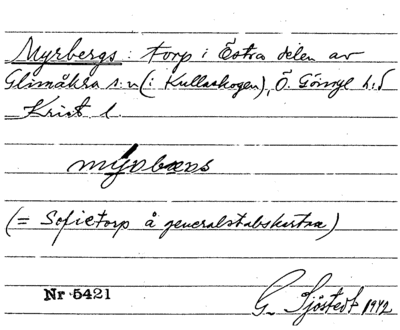 Myrbergs: torp i Östra delen av
Glimåkra s:n (i Kullaskogen), Ö. Göinge h:d
Krist l.
(= Sofietorp å generalstabskartan)
Nr 5421
G. Sjöstedt 1942